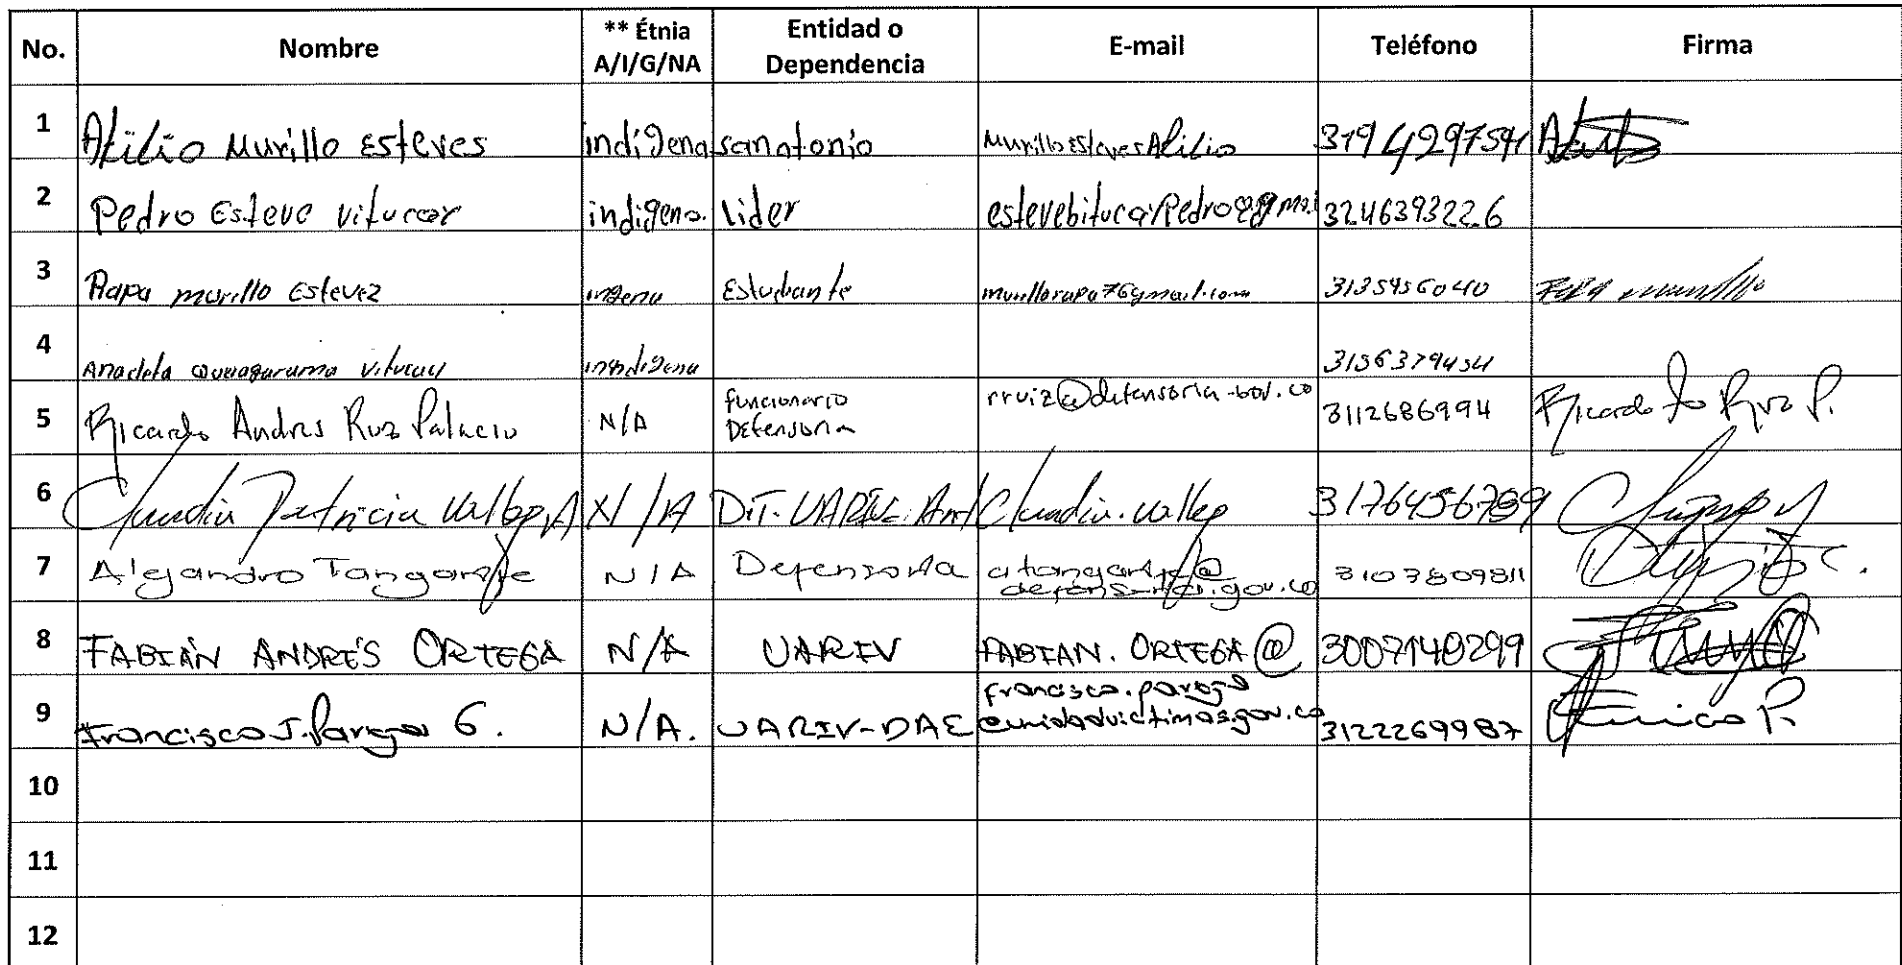 No. Nombre ** Étnia A/I/G/NA Entidad o Dependencia E-mail Teléfono Firma
1 Atilio Murillo Esteves indígena sanatonio Murillo Esteves Atilio 3194297591
2 Pedro Esteve vitucar indigena. Lider estevebitucarpedro@gmai 3246393226
3 Rapa murillo Estevez ingena Estudiante murillorapa76gmail.com 3135956040
4 Anadela vitucay
5 Ricardo Andres Ruz Palacio N/A funcionario Defensoria rruiz@defensoria.gov.co 3112686994 Ricardo Ruz P.
6 Claudia Patricia Vallejo A N/A DT. UARIV. Ant Claudia.vallejo
7 Alejandro Tangarife N/A Defensoria atangarife@defensoria.gov.co 3103809811
8 FABIÁN ANDRÉS ORTEGA N/A UARIV FABIAN.ORTEGA@ 3007140299
9 Francisco J. Pareja G. N/A. UARIV-DAE francisco.pareja@unidadvictimas.gov.co 3122269987
10
11
12